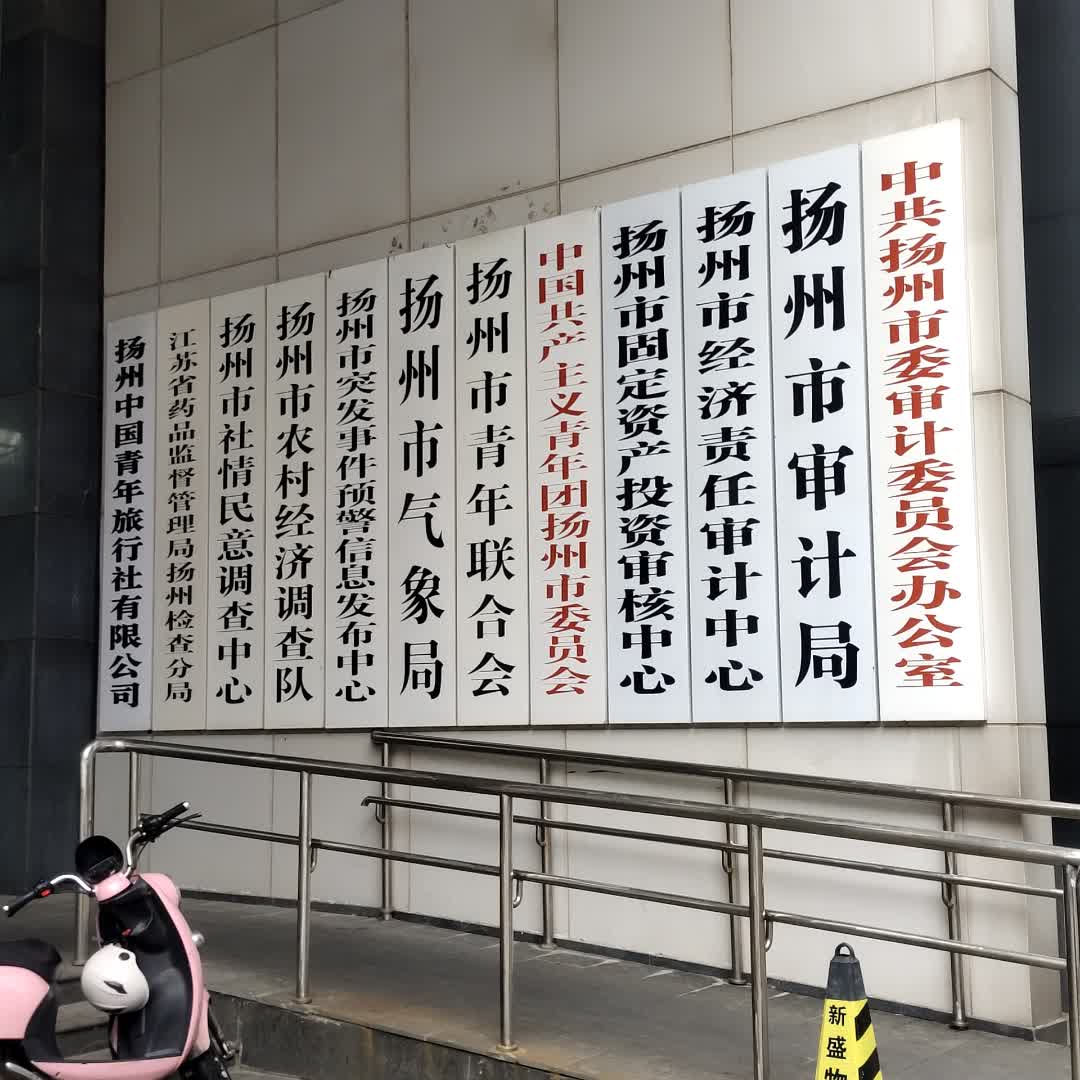 中共扬州市委审计委员会办公室
扬州市审计局
扬州市经济责任审计中心
扬州市固定资产投资审核中心
中国共产主义青年团扬州市委员会
扬州市青年联合会
扬州市气象局
扬州市突发事件预警信息发布中心
扬州市农村经济调查队
扬州市社情民意调查中心
江苏省药品监督管理局扬州检查分局
扬州中国青年旅行社有限公司
新盛物